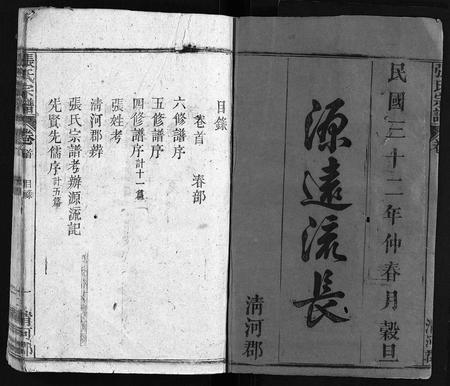 張氏宗譜 卷
清河郡
民國三十二年仲春月穀旦
源遠流長
清河郡
目錄
卷首 春部
六修譜序
五修譜序
四修譜序計十一篇
張姓考
清河郡辨
張氏宗譜考辦源流記
先賢先儒序計五篇
張氏宗譜 卷首 目錄 一 清河郡